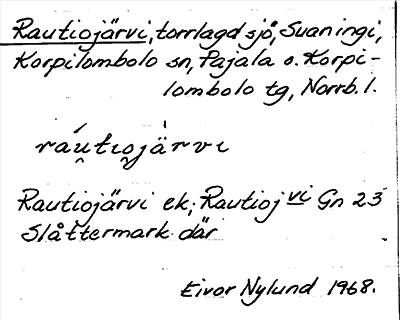 Rautiojärvi, torrlagd sjö, Suaningi,
Korpilombolo sn, Pajala o. Korpi-
lombolo tg, Norrb. l.
ráu̯tio̯jà̈rvi
Rautiojärvi ek; Rautioj vi Gn 23
Slåttermark där
Eivor Nylund 1968.